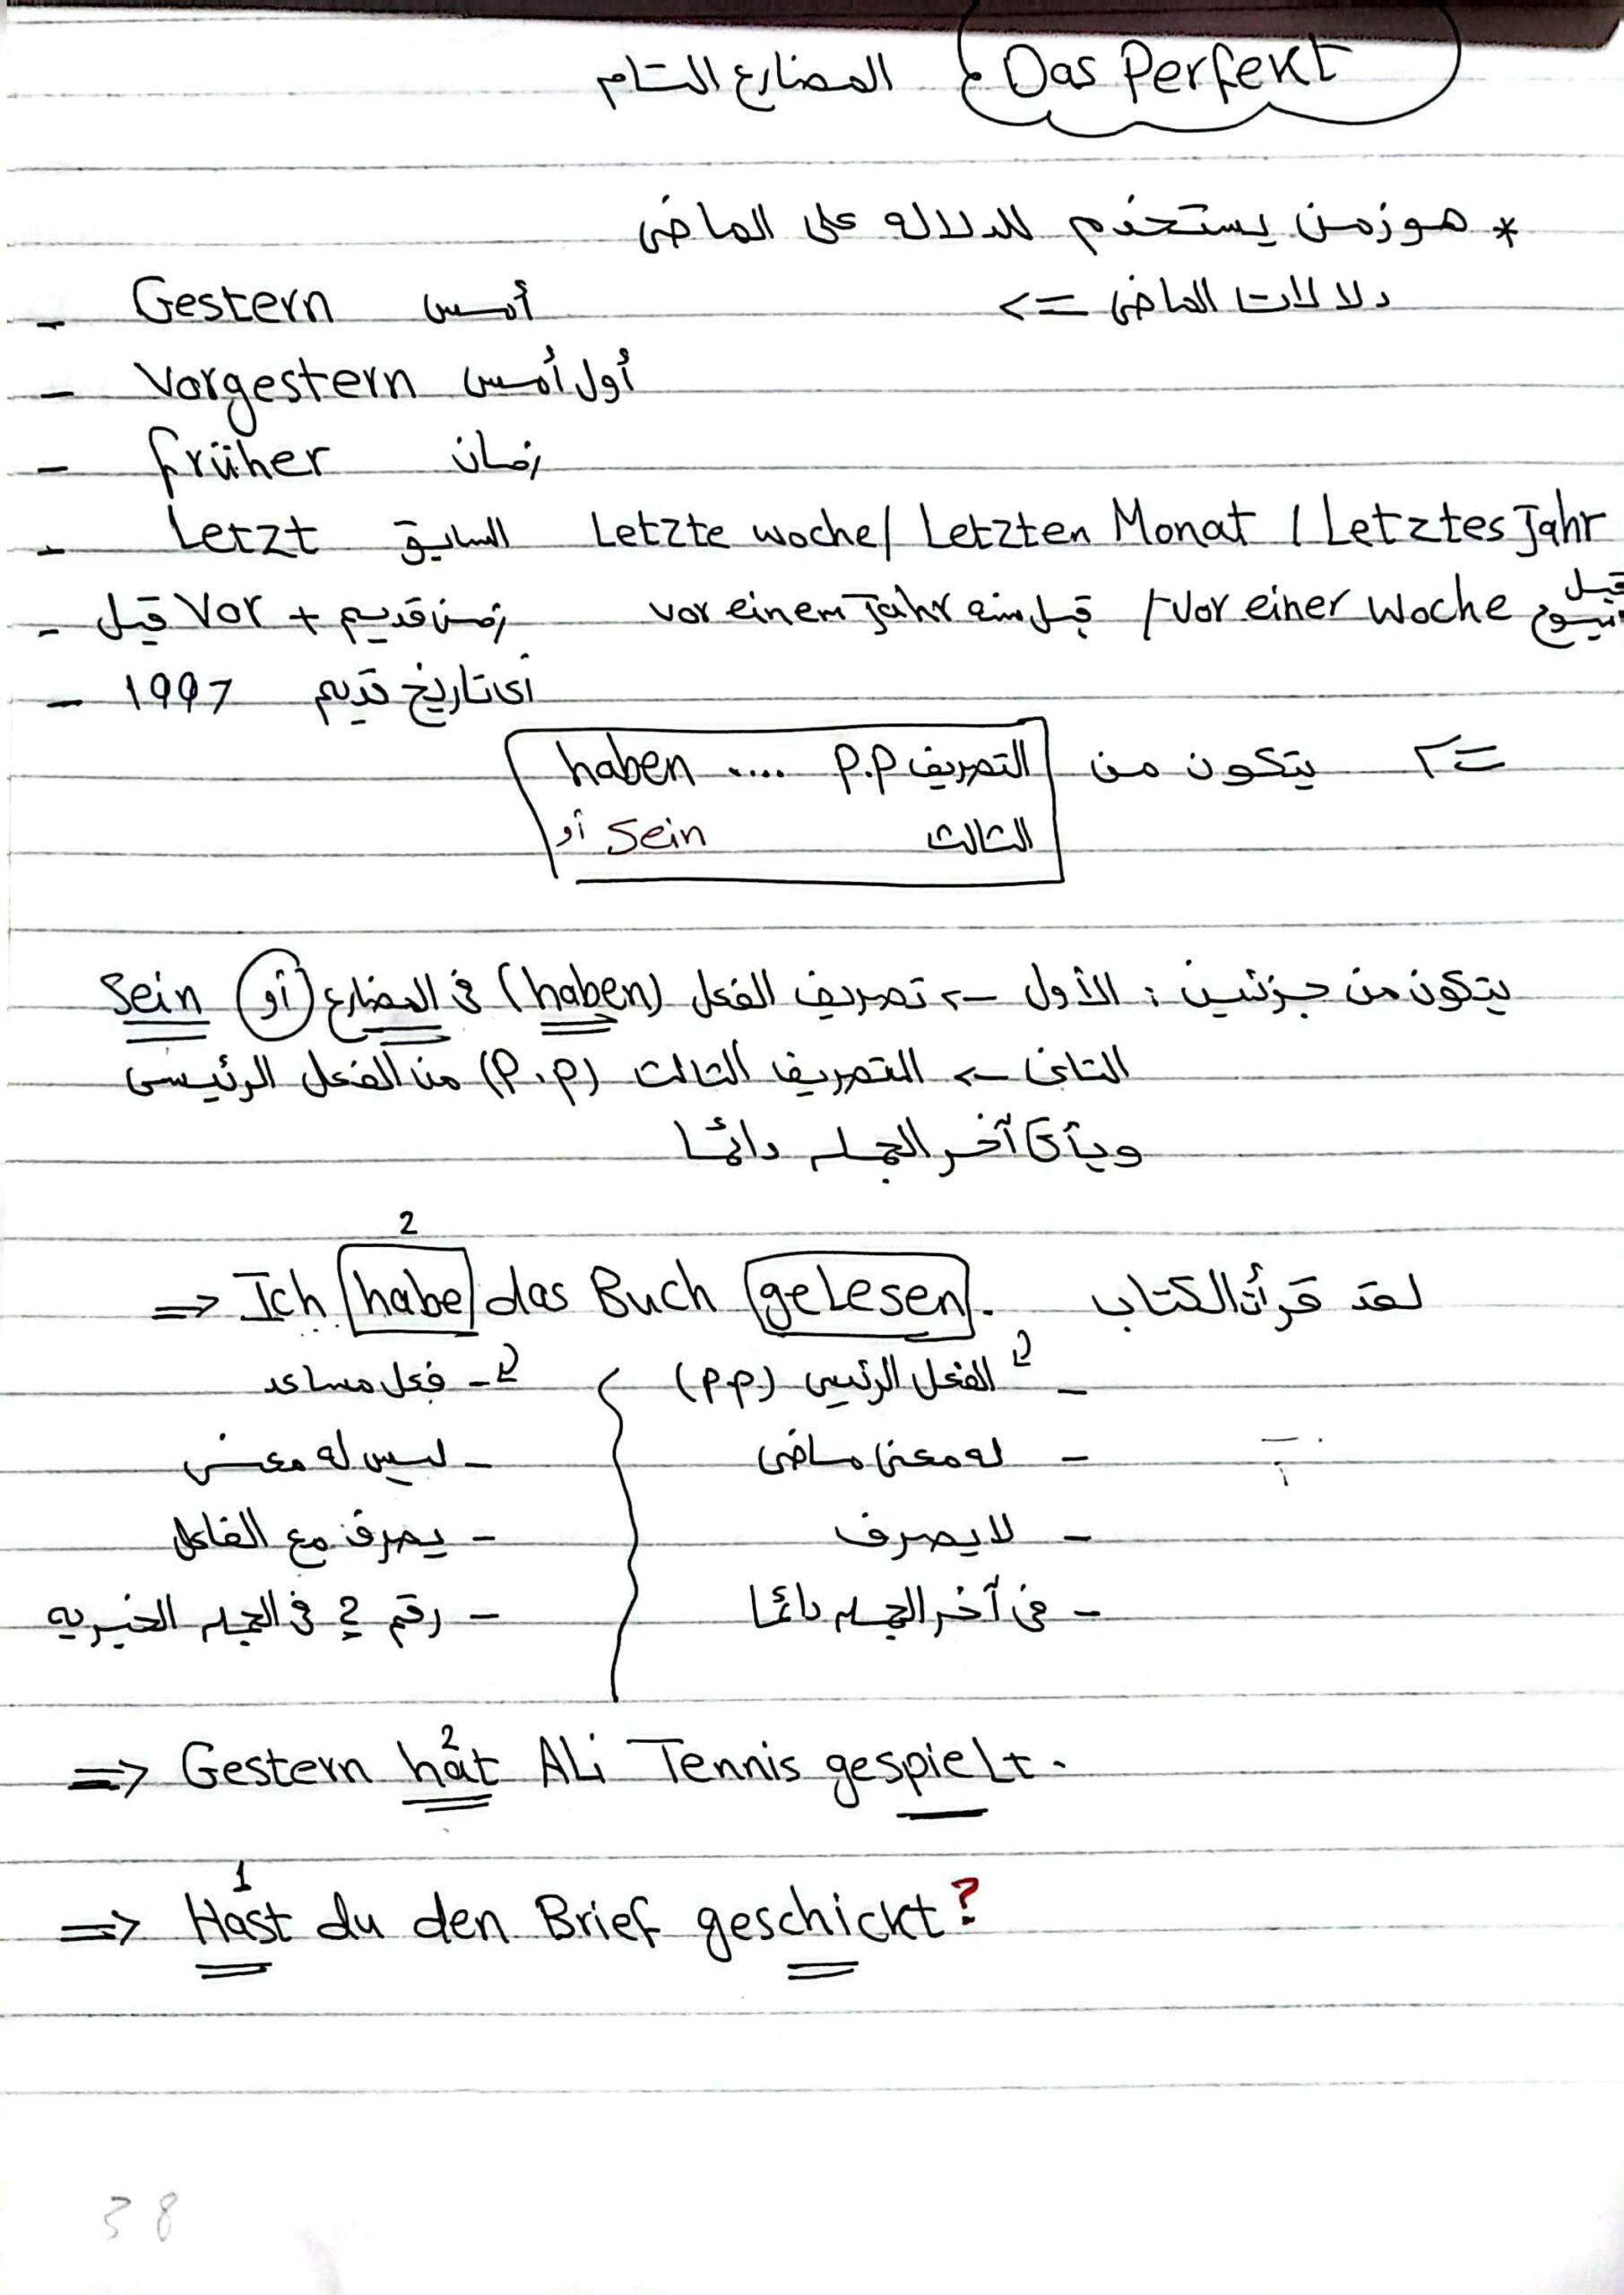 Das Perfekt المضارع التام
* هو زمن يستخدم للدلاله على الماضى
دلالات الماضى <=
- Gestern أمس
- Vorgestern أول أمس
- früher زمان
- Letzt السابق Letzte woche / Letzten Monat / Letztes Jahr
- قبل Vor + زمن قديم vor einem Jahr قبل سنه / Vor einer Woche قبل
- 1997 أى تاريخ قديم
=> يتكون من haben .... p.p التصريف
أو Sein الثالث
يتكون من جزئين : الأول -> تصريف الفعل (haben) فى المضارع (أو) Sein
الثانى -> التصريف الثالث (P.p) من الفعل الرئيسى
ويأتى آخر الجمله دائمًا
2
=> Ich habe das Buch gelesen. لقد قرأت الكتاب
- الفعل الرئيسى (p.p) - فعل مساعد
- له معنى ماضى - ليس له معنى
- لا يصرف - يصرف مع الفاعل
- فى آخر الجمله دائمًا - رقم 2 فى الجمله الخبريه
2
=> Gestern hat Ali Tennis gespielt.
1
=> Hast du den Brief geschickt?
38